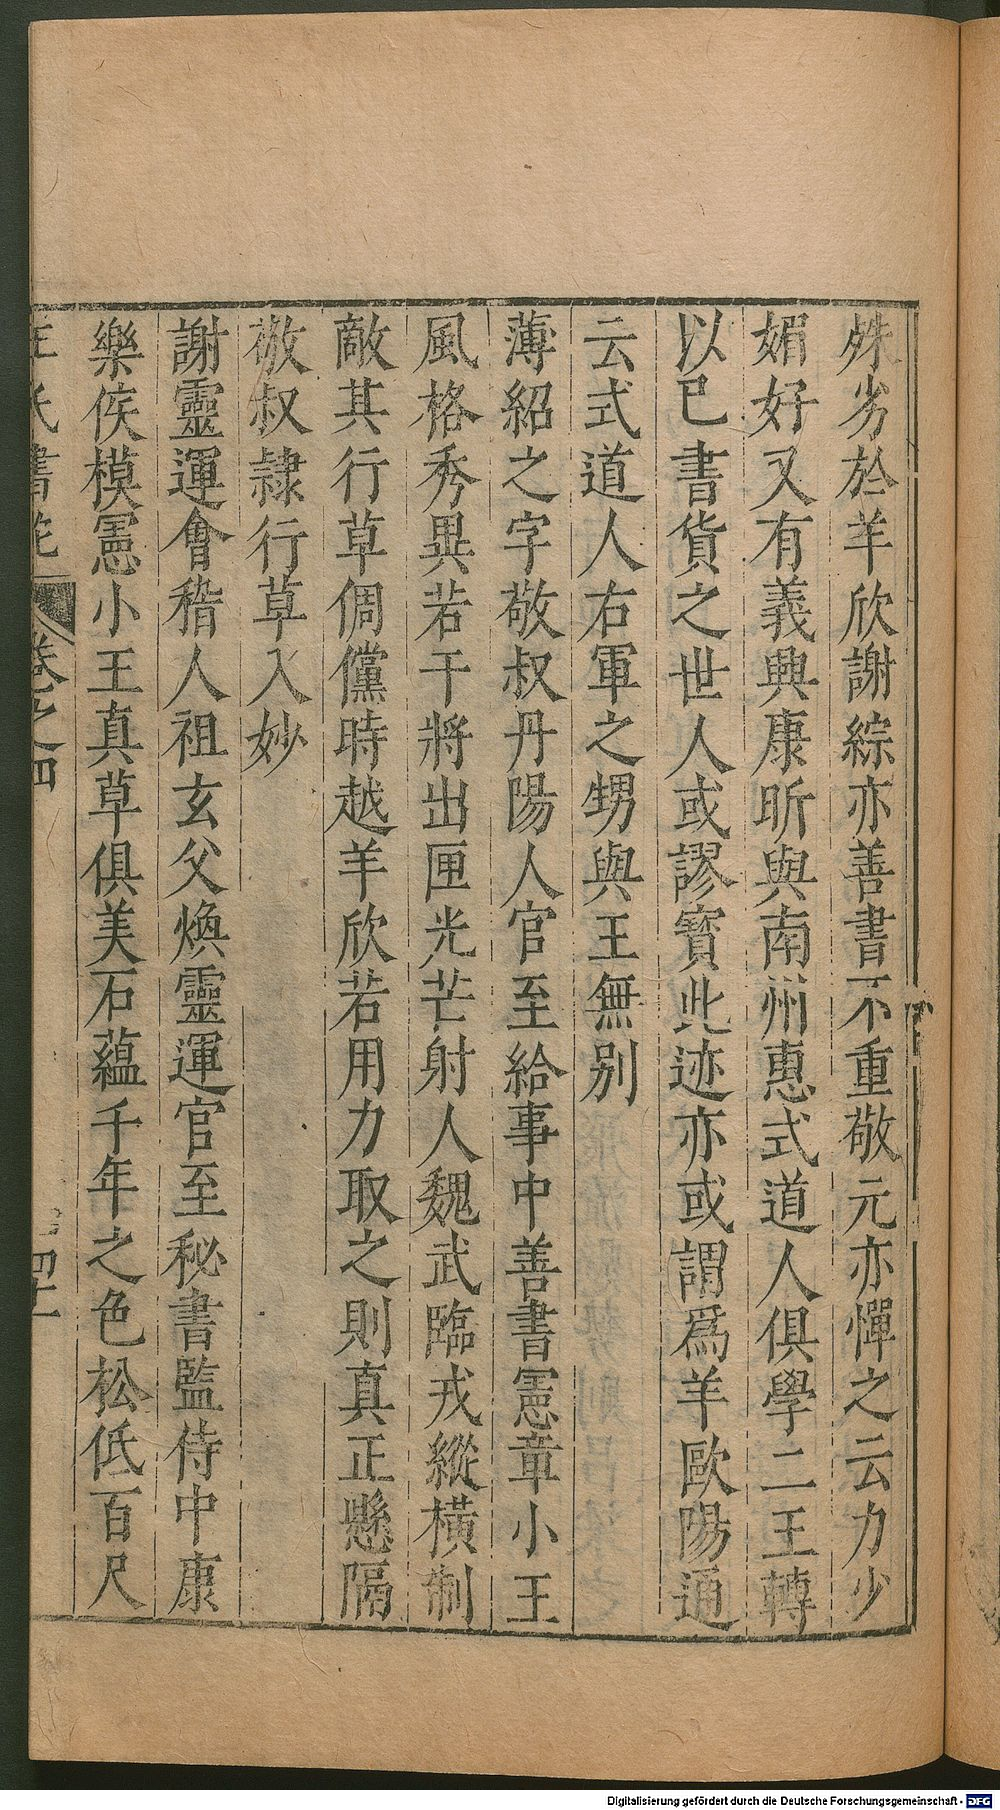 殊劣於羊欣謝綜亦善書不重敬元亦憚之云力少
媚好又有義興康昕與南州惠式道人俱學二王轉
以巳書貨之世人或謬寳此迹亦或謂爲羊歐陽通
云式道人右軍之甥與王無别
薄紹之字敬叔丹陽人官至給事中善書憲章小王
風格秀異若干將出匣光芒射人魏武臨戎縱横制
敵其行草倜儻時越羊欣若用力取之則真正懸隔
敬叔隷行草入妙
謝靈運會稽人祖玄父煥靈運官至秘書監侍中康
樂侯模憲小王真草俱美石蘊千年之色松低百尺
王氏書苑 卷之四
Digitalisierung gefördert durch die Deutsche Forschungsgemeinschaft - DFG